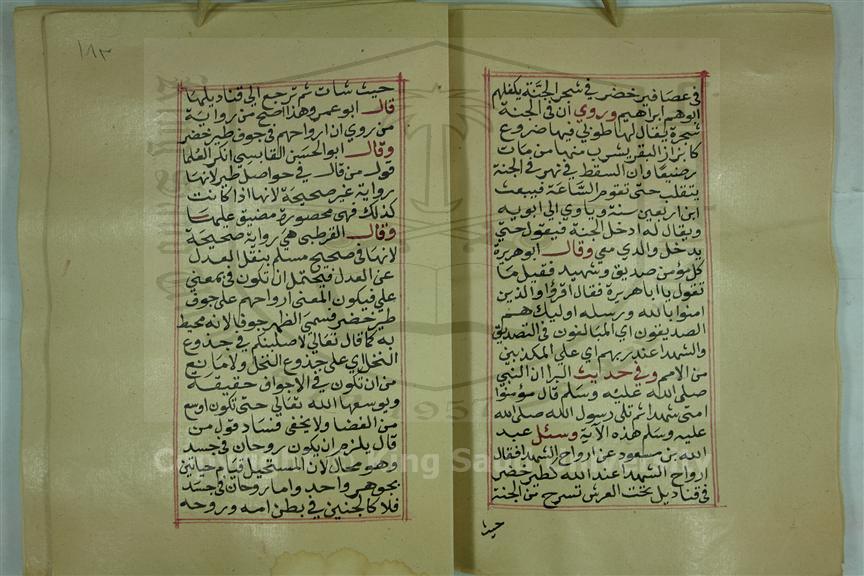 فى عصافير خضر في شجر الجنة يكفلهم
ابوهم ابراهيم وروي أن فى الجنة
شجرة يقال لها طوبى فيها ضروع
كابزاز البقر يشرب منها من مات
رضيعا وان السقط في نهر فى الجنة
يتقلب حتى تقوم الساعة فيبعث
ابن اربعين سنة وياوي الى ابويه
ويقال له ادخل الجنة فيقول حتى
يدخل والدي معي وقال ابو هريرة
كل مؤمن صديق وشهيد فقيل ما
تقول يا ابا هريرة فقال اقرؤا والذين
امنوا بالله ورسله اوليك هم
الصديقون اي المبالغون فى التصديق
والشهدا عند ربهم اي على المكذبين
من الامم وفي حديث البرا ان النبي
صلى الله عليه وسلم قال مؤمنوا
امتى شهدا ثم تلى رسول الله صلى الله
عليه وسلم هذه الآية وسئل عبد
الله بن مسعود عن ارواح الشهدا فقال
ارواح الشهدا عند الله كطير خضر
فى قناديل تحت العرش تسرح من الجنة
حيث
١٨٣
حيث شات ثم ترجع الى قناديلها
قال ابو عمر وهذا اصح من رواية
من روي ان ارواحهم في جوف طير خضر
وقال ابو الحسن القابسي انكر العلما
قول من قال في حواصل طير لانها
رواية غير صحيحة لانها اذا كانت
كذلك فهى محصورة مضيق عليها
وقال القرطبي هي رواية صحيحة
لانها فى صحيح مسلم بنقل العدل
عن العدل فيحتمل ان تكون فى بمعنى
على فيكون المعنى ارواحهم على جوف
طير خضر فسمي الظهر جوفا لانه محيط
به كما قال تعالى لاصلبنكم في جذوع
النخل اي على جذوع النخل ولا مانع
من ان تكون في الاجواف حقيقة
ويوسعها الله تعالى حتى تكون اوسع
من الفضا ولا يخفى فساد قول من
قال يلزم ان يكون روحان في جسد
وهو محال لان المستحيل قيام حياتين
بجوهر واحد واما روحان في جسد
فلا كالجنين في بطن امه وروحه